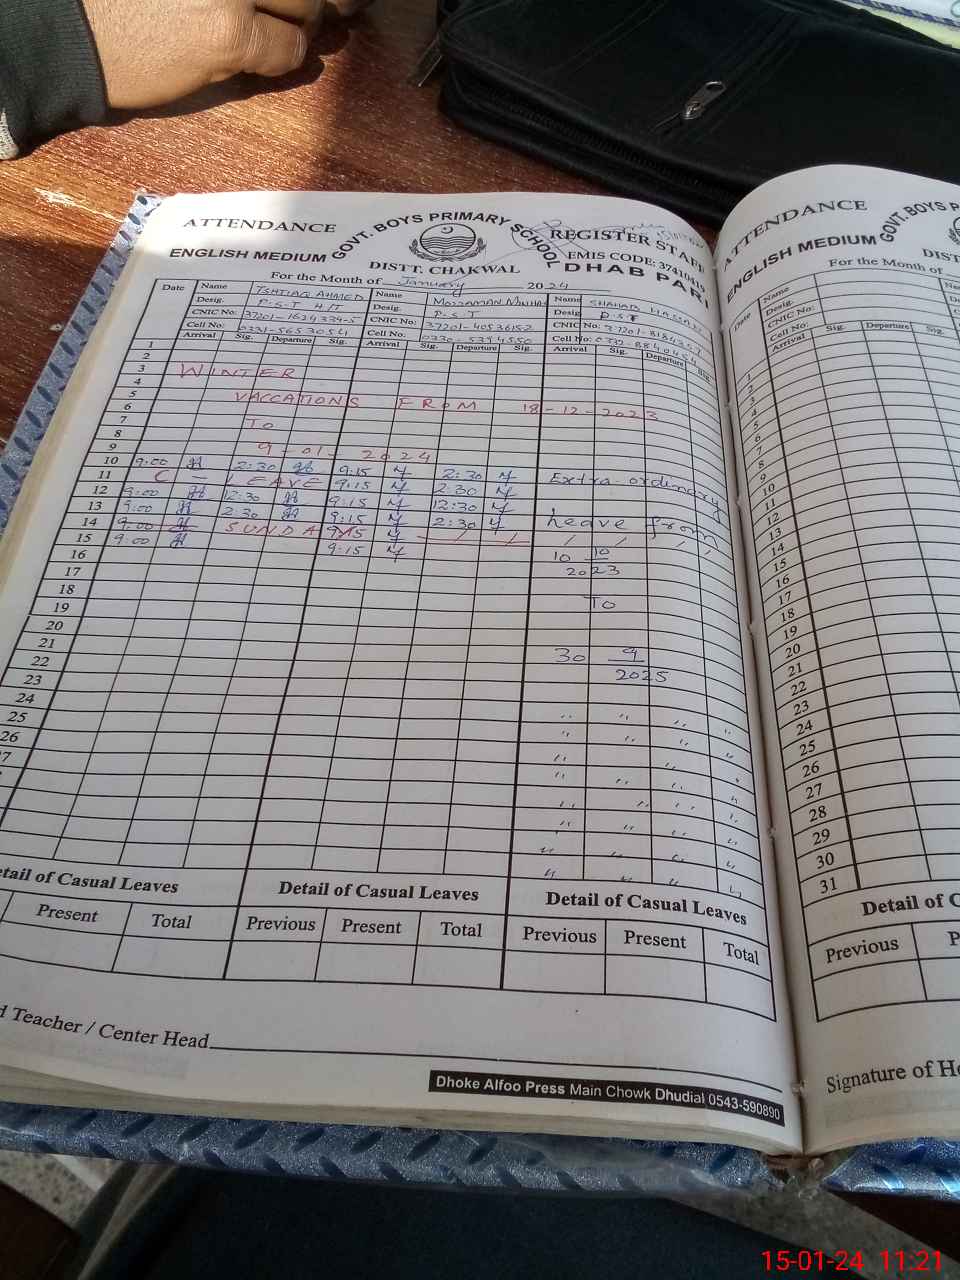 ATTENDANCE GOVT. BOYS PRIMARY SCHOOL REGISTER STAFF
ENGLISH MEDIUM DISTT. CHAKWAL EMIS CODE: 37410419
DHAB PARI
For the Month of January 2024
Date Name ISHTIAQ AHMED Name Name SHAHAB
Desig. P.S.T H.T Desig. P.S.T Desig. P.S.T
CNIC No: 37201-1624334-5 CNIC No: 37201-4053615-2 CNIC No:
Cell No: 0331-5653054 Cell No: 0330-5394550 Cell No:
Arrival Sig. Departure Sig. Arrival Sig. Departure Sig. Arrival Sig. Departure Sig.
1
2
3 WINTER
4
5 VACCATIONS FROM 18-12-2023
6
7 TO
8
9 9-01-2024
10 9:00 2:30 9:15 2:30 Extra-ordinary
11 C - LEAVE 9:15 2:30
12 9:00 12:30 9:15 12:30
13 9:00 2:30 9:15 2:30 Leave from
14 9:00 SUNDAY 9:15
15 9:00 9:15 10 10
16 2023
17
18 To
19
20
21 30 9
22 2025
23
24
25
26
Detail of Casual Leaves Detail of Casual Leaves Detail of Casual Leaves
Present Total Previous Present Total Previous Present Total
Teacher / Center Head
Dhoke Alfoo Press Main Chowk Dhudial 0543-590890
ATTENDANCE GOVT. BOYS
ENGLISH MEDIUM
For the Month of
Date Name
Desig.
CNIC No:
Cell No:
Arrival Sig. Departure Sig.
1
2
3
4
5
6
7
8
9
10
11
12
13
14
15
16
17
18
19
20
21
22
23
24
25
26
27
28
29
30
31
Detail of
Previous
Signature of
15-01-24 11:21